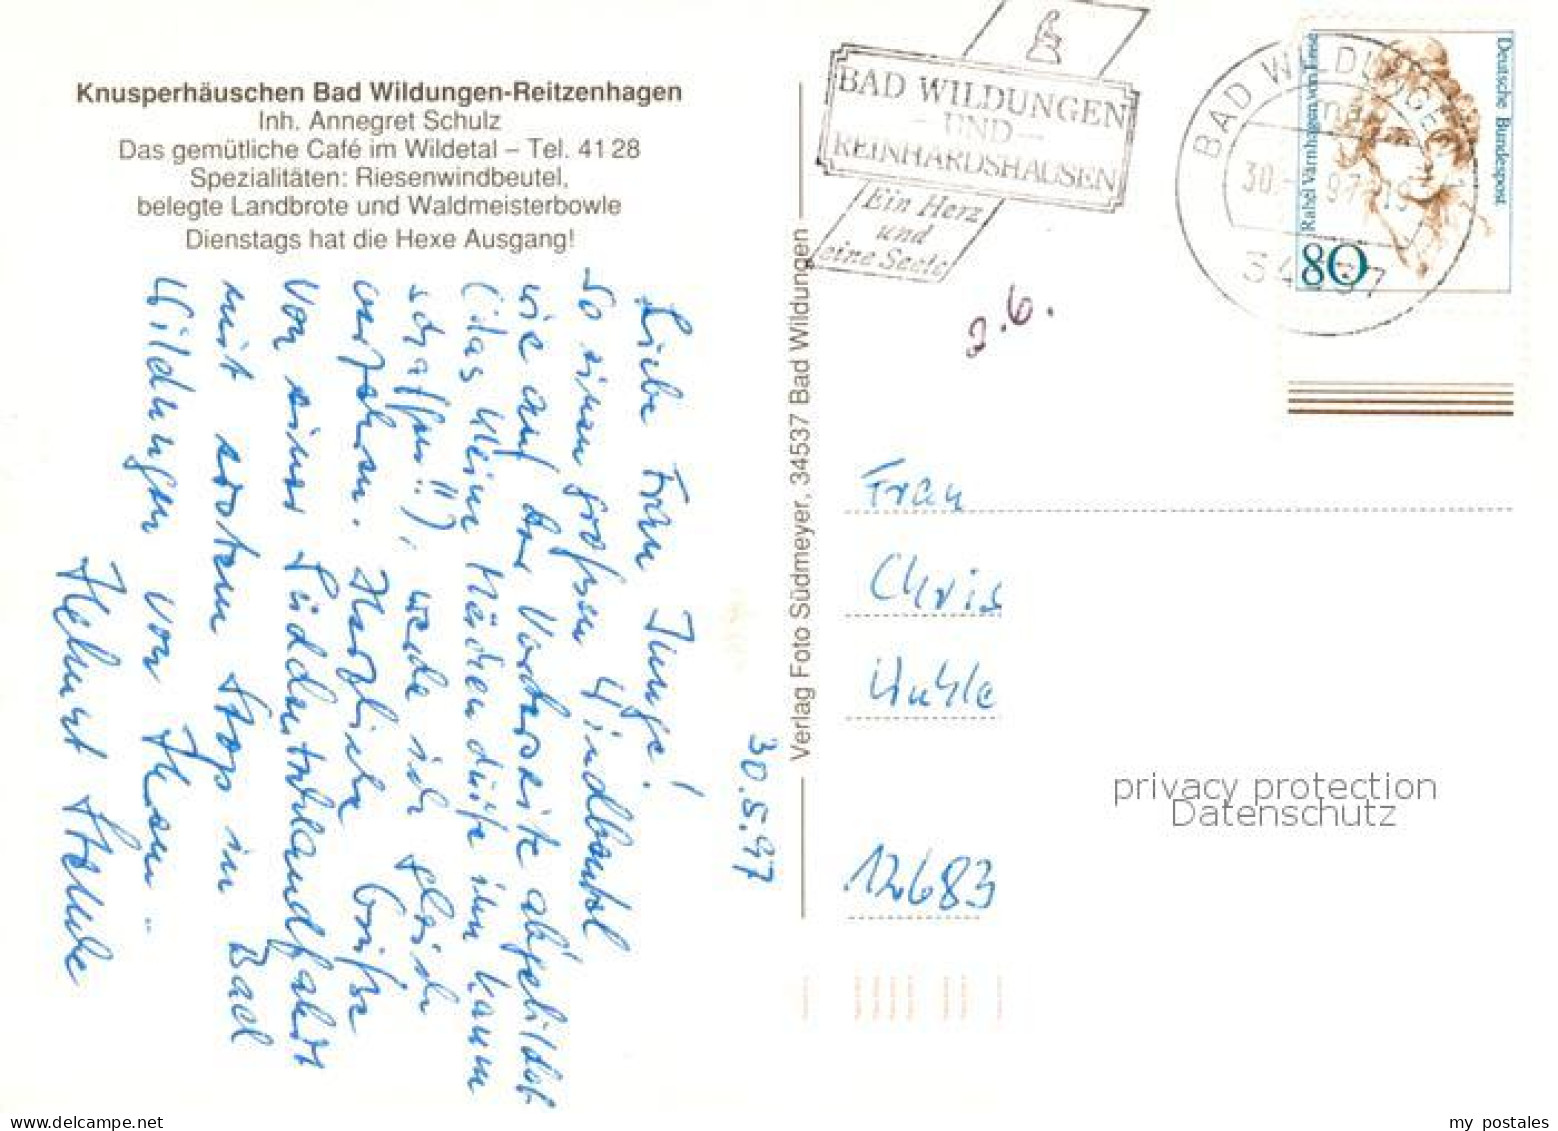 Knusperhäuschen Bad Wildungen-Reitzenhagen
Inh. Annegret Schulz
Das gemütliche Café im Wildetal – Tel. 41 28
Spezialitäten: Riesenwindbeutel,
belegte Landbrote und Waldmeisterbowle
Dienstags hat die Hexe Ausgang!
30.5.97
Liebe Frau Junge!
So einen großen Windbeutel
wie auf der Vorderseite abgebildet
(das kleine Mädchen dürfte ihn kaum
schaffen!!), werde ich gleich
verzehren. Herzliche Grüße
von einer Süddeutschlandfahrt
mit erstem Stop in Bad
Wildungen von Ihrem
Helmut
Verlag Foto Südmeyer, 34537 Bad Wildungen
BAD WILDUNGEN
- UND -
REINHARDSHAUSEN
Ein Herz
und
eine Seele
BAD WILDUNGEN 1
ma
30. 97-19
34537
Deutsche Bundespost
Rahel Varnhagen von Ense
80
2.6.
Frau
Chris
Huhle
12683
privacy protection
Datenschutz
delcampe.net
my_postales